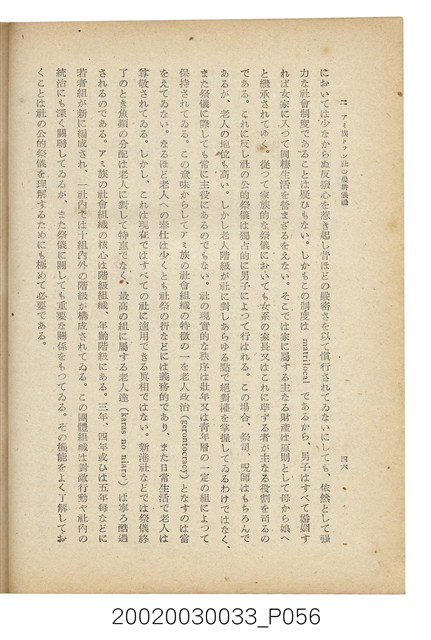 二　アミ族トラン社の農耕儀礼
四六
においては少なからぬ反撥心を惹き起し昔ほどの厳密さを以て慣行されてゐないにしても、依然として强
力な社會制度であることは疑ひもない。しかもこの制度は matrilocal であるから、男子はすべて婚姻す
れば女家に入つて同棲生活を營まざるをえない。そこでは家に屬する主なる財產は原則として母から娘へ
と繼承されてゆく。從つて家族的な祭儀においても女系の家長又はこれに準ずる者が主なる役割を司るの
である。これに反し社の公的祭儀は獨占的に男子によつて行はれる。この場合、祭司、呪師はもちろんで
あるが、老人の地位も高い。しかし老人階級が社に對しあらゆる點で絕對權を掌握してゐるわけではなく、
また祭儀に際しても常に主役にあるのでもない。社の現實的な秩序は壯年又は青年層の一定の組によつて
保持されてゐる。この意味からしてアミ族の社會組織の特徵の一を老人政治(gerontocracy)となすのは當
をえてゐない。なるほど老人への奉仕は少くとも社祭の折などには義務的であり、また日常生活で老人は
尊敬されてゐる。しかし、これは現在ではすべての社に適用できる眞相ではない。新港社などでは祭儀終
了のとき魚類の分配は老人に對して特惠でなく、最高の組に屬する老人達(karas no niaro)は寧ろ酷遇
されるのである。アミ族の社會組織の核心は階級組織、年齡階級にある。三年、四年或ひは五年每などに
若者組が新に編成され、一社內では十組內外の階級が構成されてゐる。この團體組織は對敵行動や社內の
統治にも深く關聯してゐるが、また祭儀に關しても重要な關係をもつてゐる。その機能をよく了解してお
くことは社の公的祭儀を理解するためにも極めて必要である。
20020030033_P056